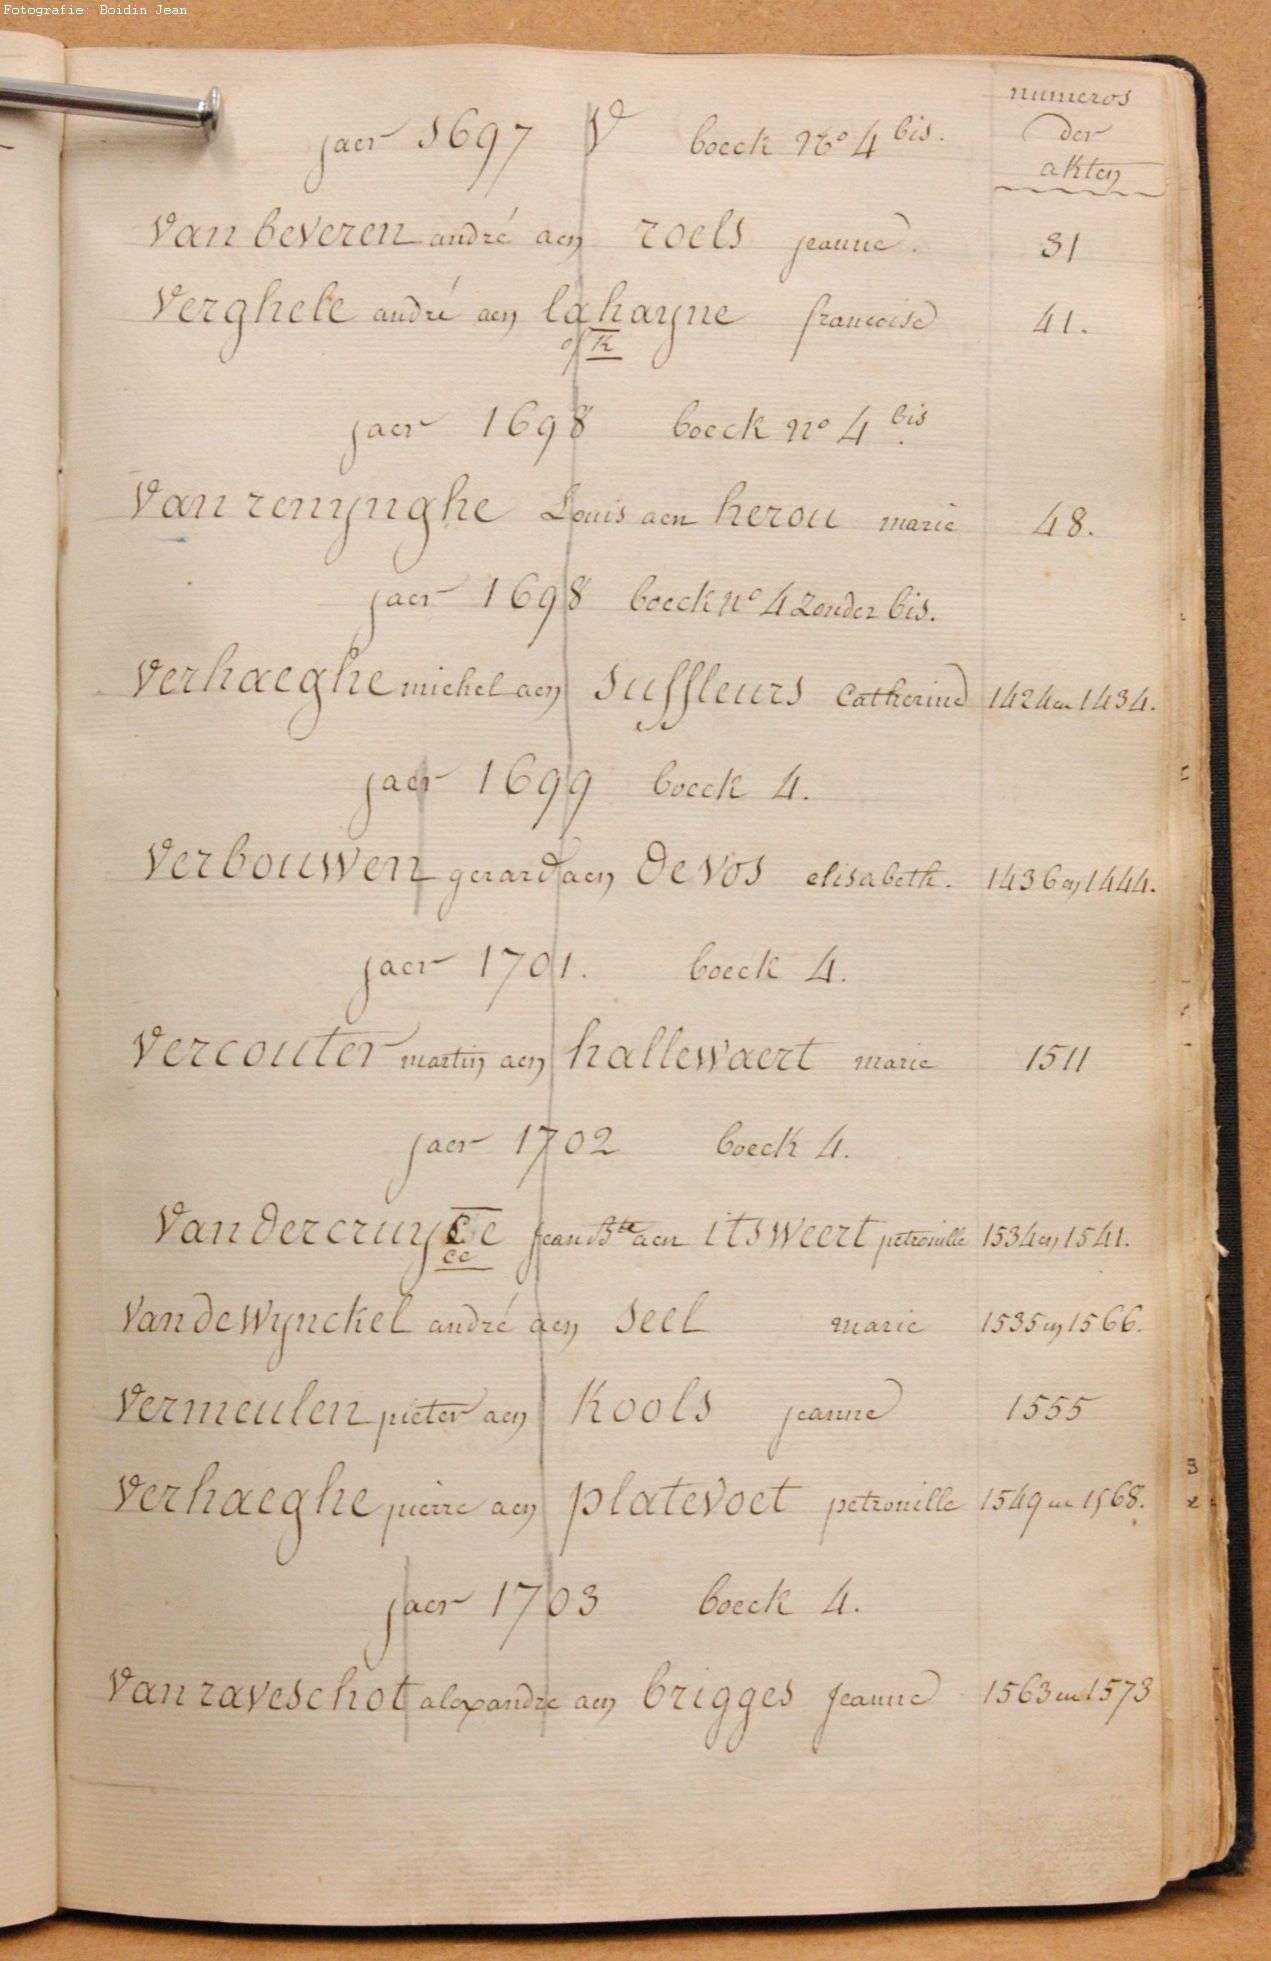 Fotografie: Boidin Jean
numeros
der
akten
jaer 1697 V boeck No 4 bis.
Van beveren andré aen roels jeanne. 31
Verghele andré aen lahayne francoise 41.
of k
jaer 1698 boeck no 4 bis
Van renynghe Louis aen herou marie 48.
jaer 1698 boeck no 4 zonder bis.
Verhaeghe michel aen suffleurs Catherine 1424 en 1434.
jaer 1699 boeck 4.
Verbouwen gerard aen De Vos elisabeth. 1436 en 1444.
jaer 1701. boeck 4.
Vercouter martin aen hallewaert marie 1511
jaer 1702 boeck 4.
Van der cruyce jean Bte aen itsweert petronille 1534 en 1541.
cc
Van de Wynckel andré aen seel marie 1535 en 1566.
Vermeulen pieter aen Kools jeanne 1555
Verhaeghe pierre aen platevoet petronille 1549 en 1568.
jaer 1703 boeck 4.
Van raveschot alexandre aen brigges jeanne 1563 en 1573